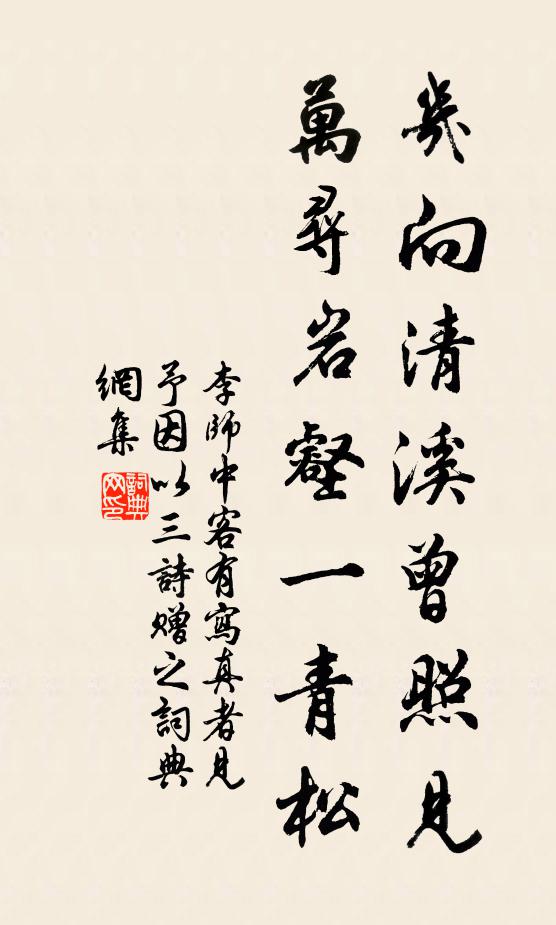 幾向清溪曾照見
萬尋岩壑一青松
李師中客有寫真者見
予因以三詩贈之詞典
網集
詞典
网印